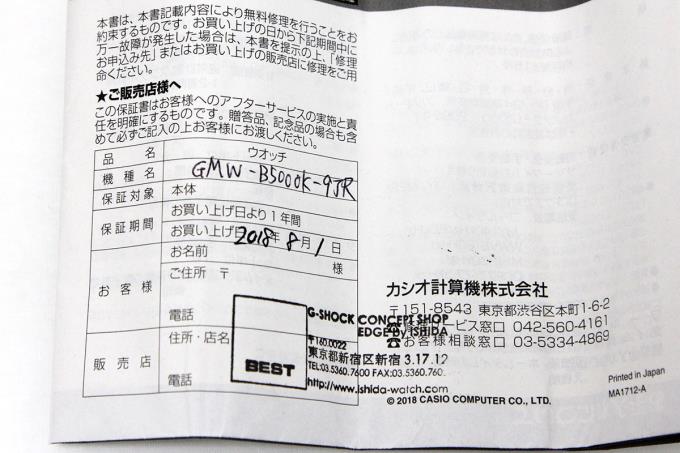 本書は、本書記載内容により無料修理を行うことをお
約束するものです。お買い上げの日から下記期間中に
万一故障が発生した場合は、本書を提示の上、「修理
お申込み先」またはお買い上げの販売店に修理をご用
命ください。
★ご販売店様へ
この保証書はお客様へのアフターサービスの実施と責
任を明確にするものです。贈答品、記念品の場合も含
めて必ずご記入の上お客様にお渡しください。
品名 ウオッチ
機種名 GMW-B5000K-9JR
保証対象 本体
保証期間 お買い上げ日より1年間
お買い上げ日 2018年8月1日
お客様 お名前 様
ご住所 〒
電話
販売店 住所・店名
電話
BEST
G-SHOCK CONCEPT SHOP
EDGE by ISHIDA
〒160.0022
東京都新宿区新宿 3.17.12
TEL:03.5360.7600 FAX:03.5360.760
http://www.ishida-watch.com
カシオ計算機株式会社
〒151-8543 東京都渋谷区本町1-6-2
サービス窓口 042-560-4161
お客様相談窓口 03-5334-4869
© 2018 CASIO COMPUTER CO., LTD.
Printed in Japan
MA1712-A